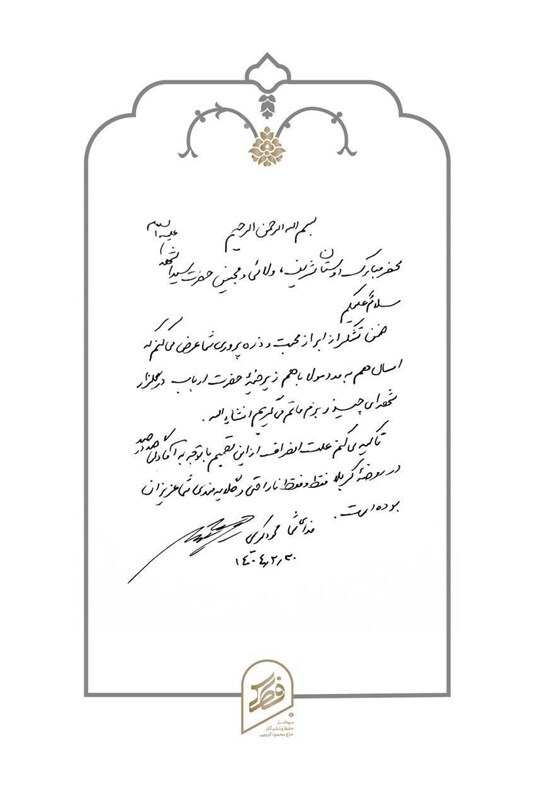 بسم الله الرحمن الرحیم
محضر مبارک دوستان شریف، ولائی و محبین حضرت سیدالشهدا علیه السلام
سلام علیکم
ضمن تشکر از ابراز محبت و ذره پروری شما عرض می کنم که
امسال هم به مدد مولا با هم زیر خیمهٔ حضرت ارباب در گلزار
شهدای چیذر بزم ماتم می گیریم انشاءالله.
تاکید می کنم علت انصراف از این تصمیم با توجه به آمادگی صد در صد
در روضهٔ کربلا فقط و فقط ناراحتی و گلایه مندی شما عزیزان
بوده است.
فدای شما محمود کریمی
۱۴۰۴٫۳٫۳۰
فطرس
حفظ و نشر آثار
حاج محمود کریمی